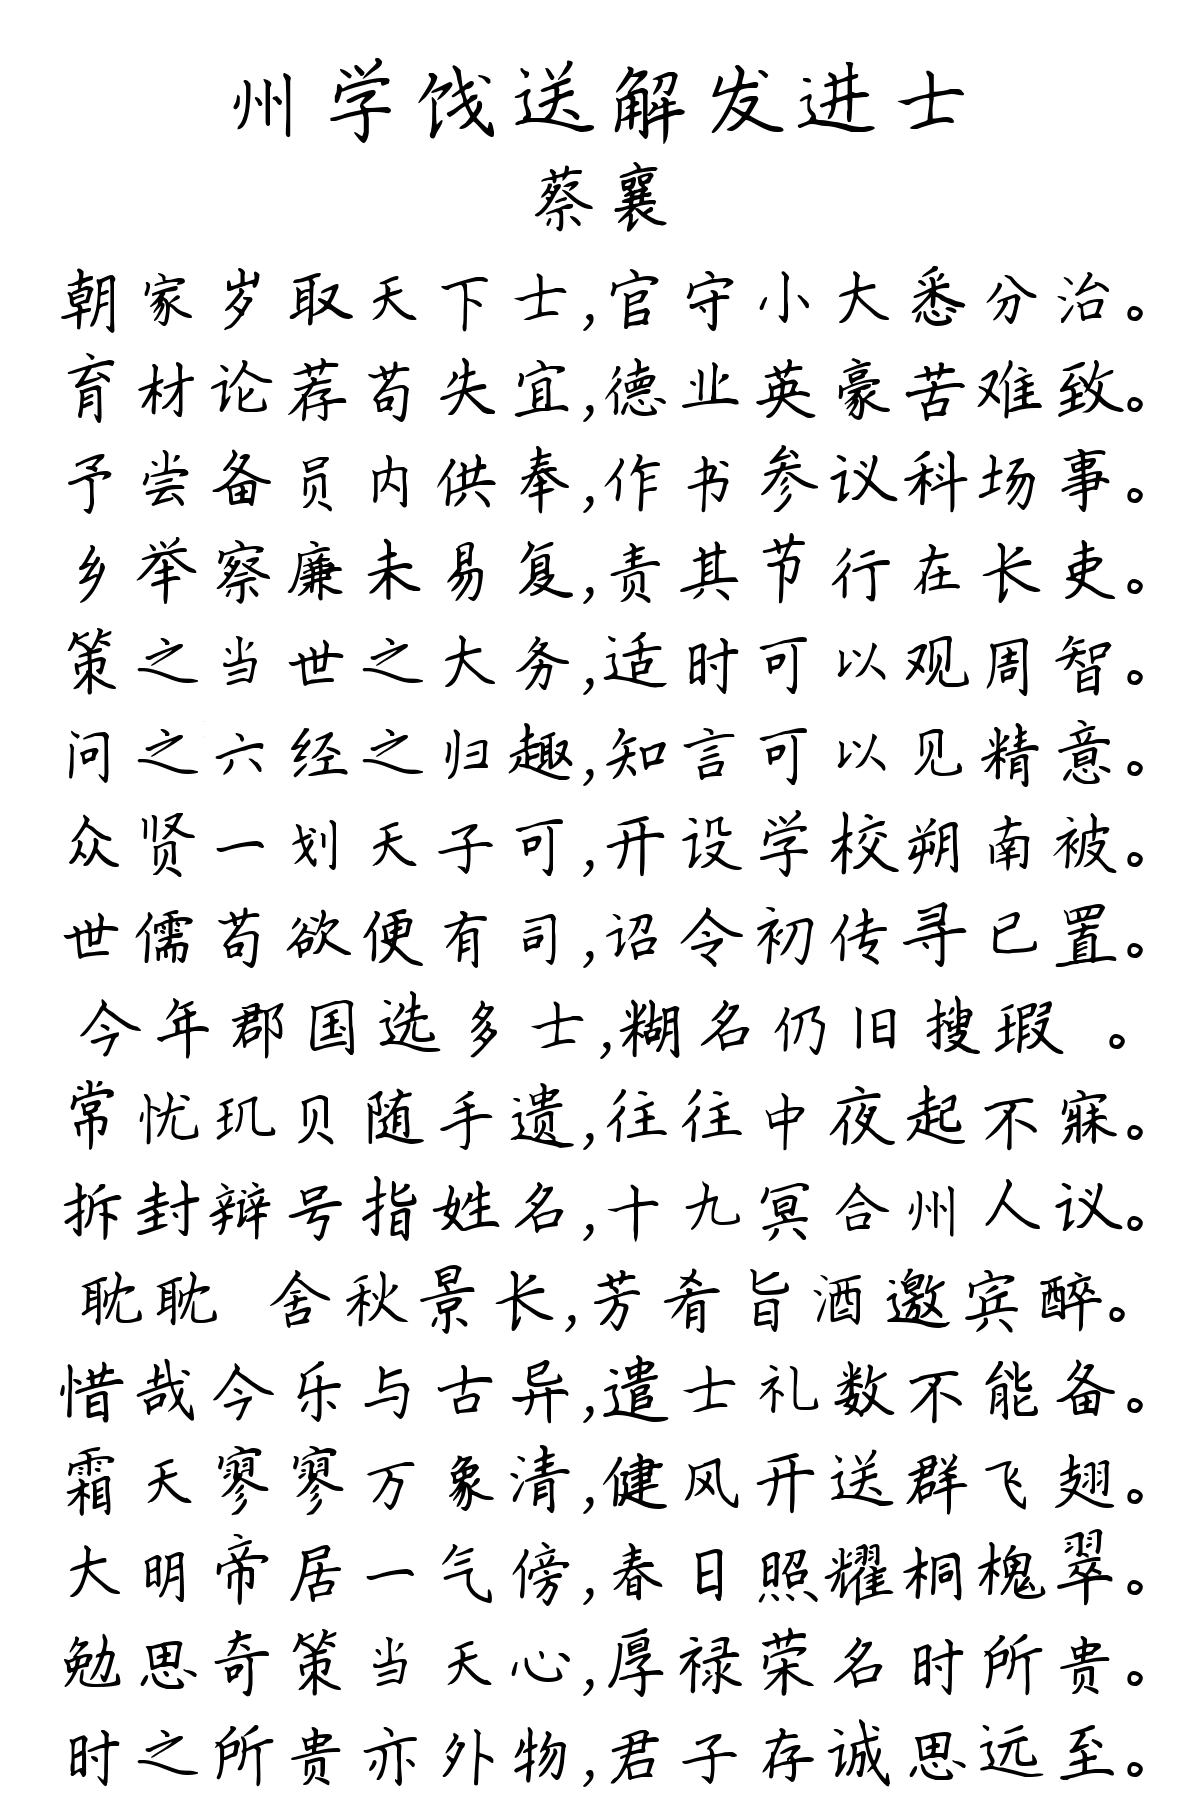 州学饯送解发进士
蔡襄
朝家岁取天下士,官守小大悉分治。
育材论荐苟失宜,德业英豪苦难致。
予尝备员内供奉,作书参议科场事。
乡举察廉未易复,责其节行在长吏。
策之当世之大务,适时可以观周智。
问之六经之归趣,知言可以见精意。
众贤一划天子可,开设学校朔南被。
世儒苟欲便有司,诏令初传寻已置。
今年郡国选多士,糊名仍旧搜瑕 。
常忧玑贝随手遗,往往中夜起不寐。
拆封辩号指姓名,十九冥合州人议。
耽耽 舍秋景长,芳肴旨酒邀宾醉。
惜哉今乐与古异,遣士礼数不能备。
霜天寥寥万象清,健风开送群飞翅。
大明帝居一气傍,春日照耀桐槐翠。
勉思奇策当天心,厚禄荣名时所贵。
时之所贵亦外物,君子存诚思远至。